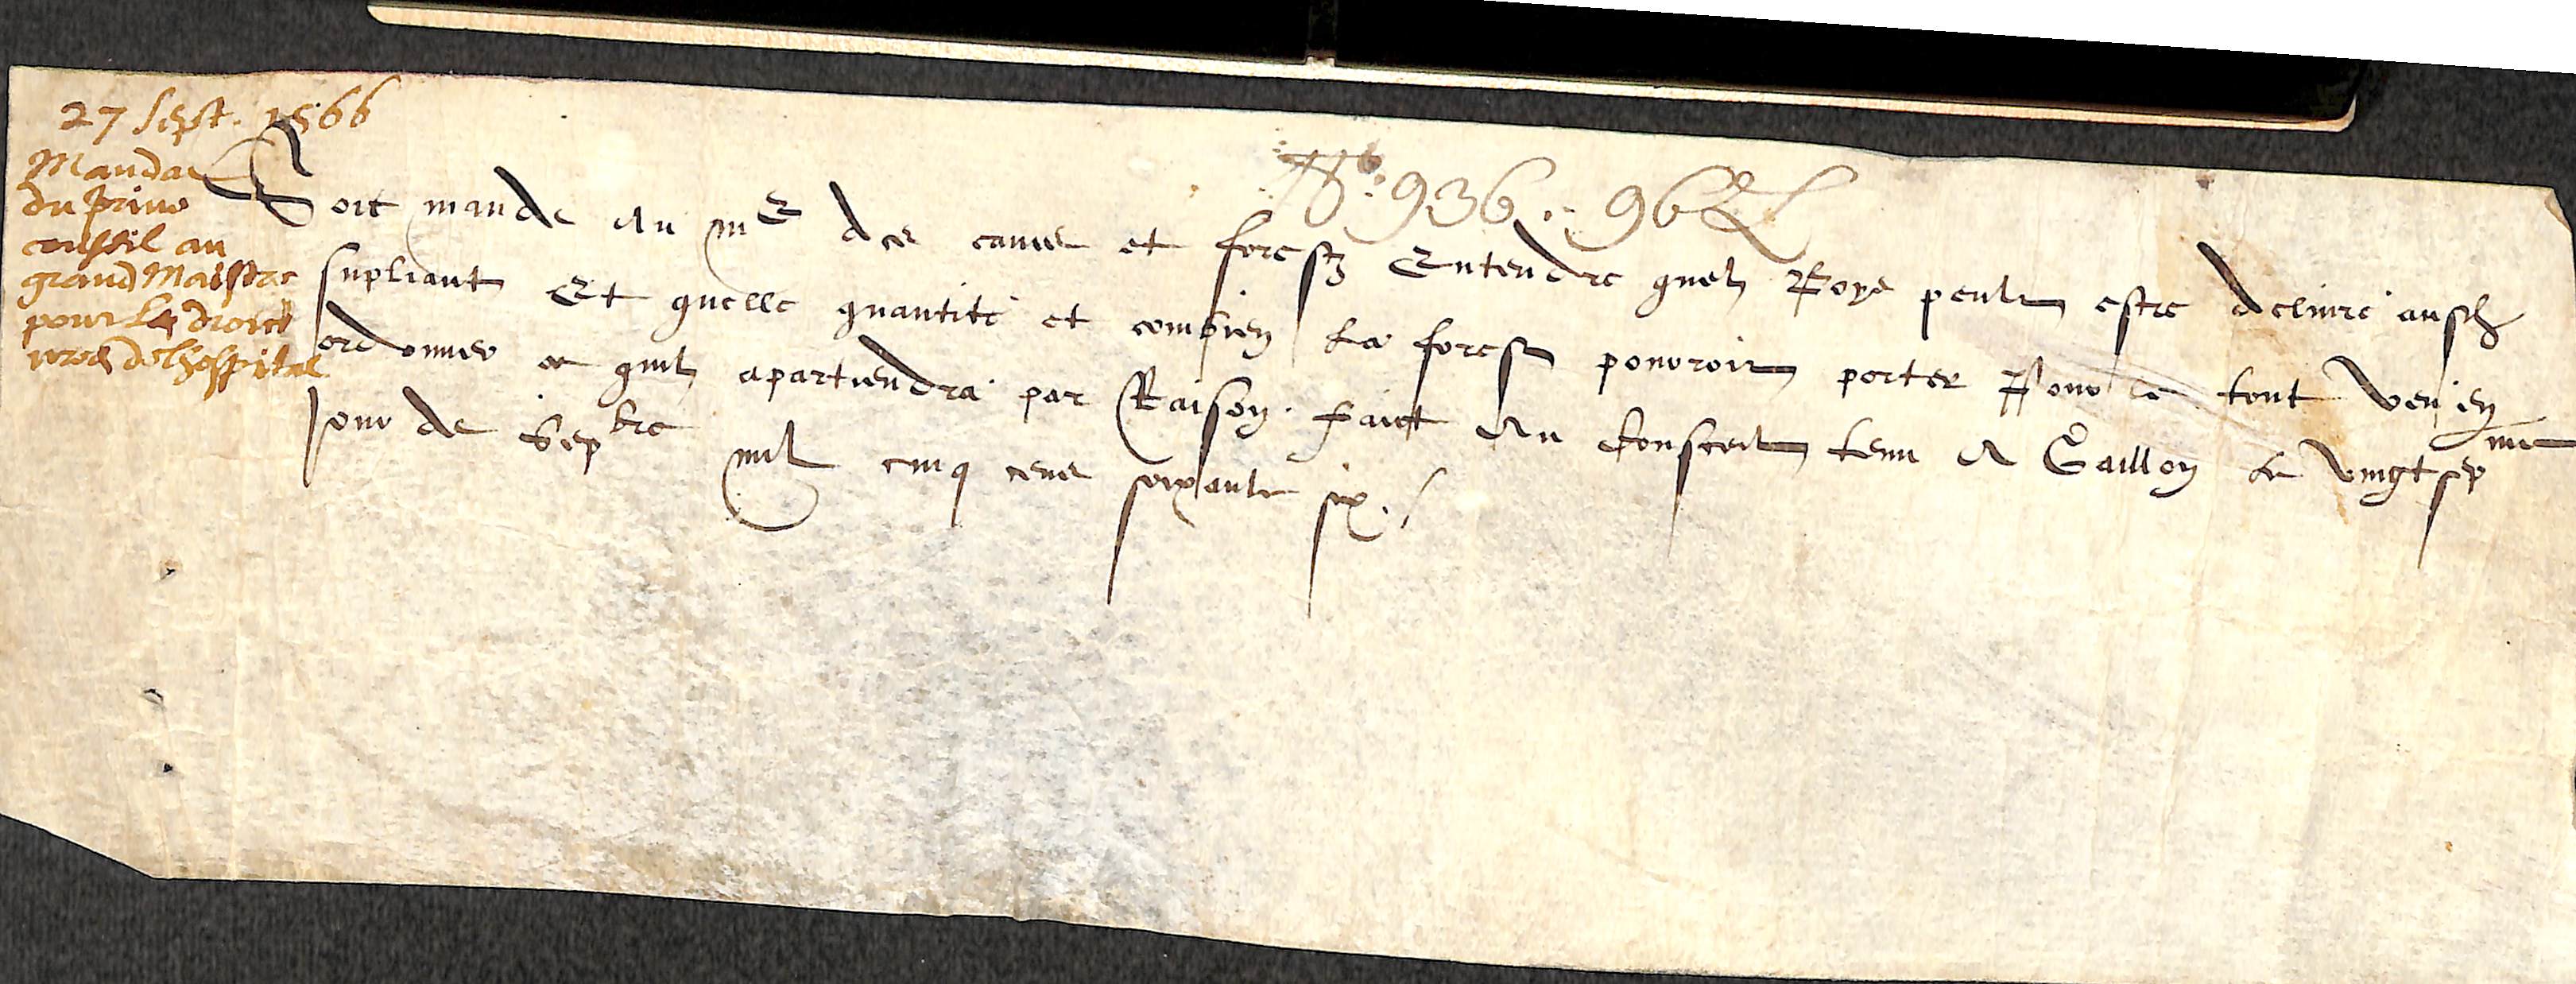 27 sept. 1566
Mandat
du prive
conseil au
grand Maistre
pour le droict
de lhospital
No. 936 :: 96
Soit mande au me des eaues et forestz Entendre quel boys peult estre delivre ausd
supliant Et quelle quantite et combien la forest pouvroit porter Pour le tout veu en
ordonner ce quil apartiendra par Raison. faict Au conseil tenu A Gaillon le vingt sepme
jour de Sepbre mil cinq cens soixante six ./